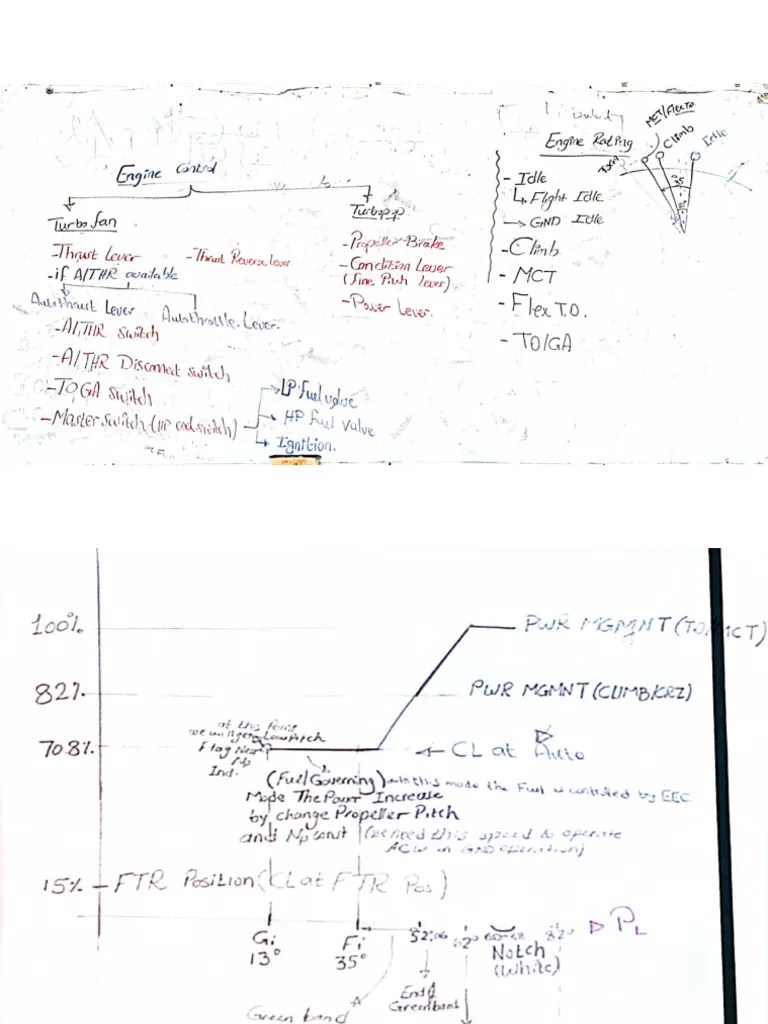 Engine Control
Turbofan
-Thrust Lever
-Thrust Reverse lever
-if A/THR available
Autothrust Lever
Autothrottle Lever.
-A/THR Switch
-A/THR Disconnect switch
-TOGA switch
-Master switch-(HP cock switch)
LP fuel valve
HP fuel valve
Ignition.
-Propeller Brake
-Condition Lever
(fine Pitch lever)
-Power Lever.
Engine Rating
- Idle
Flight Idle
GND Idle
-Climb
- MCT
- Flex T.O.
- TO/GA
MCT/FlexTO
Climb
Idle
100%
PWR MGMNT (TO/MCT)
82%
PWR MGMNT (CLIMB/CRZ)
at this point
we will get Low Pitch
Flag Near
Np
Ind.
70.8%
CL at Auto
(Fuel Governing) in this mode the Fuel is controlled by EEC
Mode The Power Increase
by change Propeller Pitch
and Np const (we need this speed to operate
ACW in GND operation)
15% FTR Position (CL at FTR Pos)
Gi
13°
Fi
35°
52°
62°
82°
PL
Notch
(White)
End of
Greenband
Green band